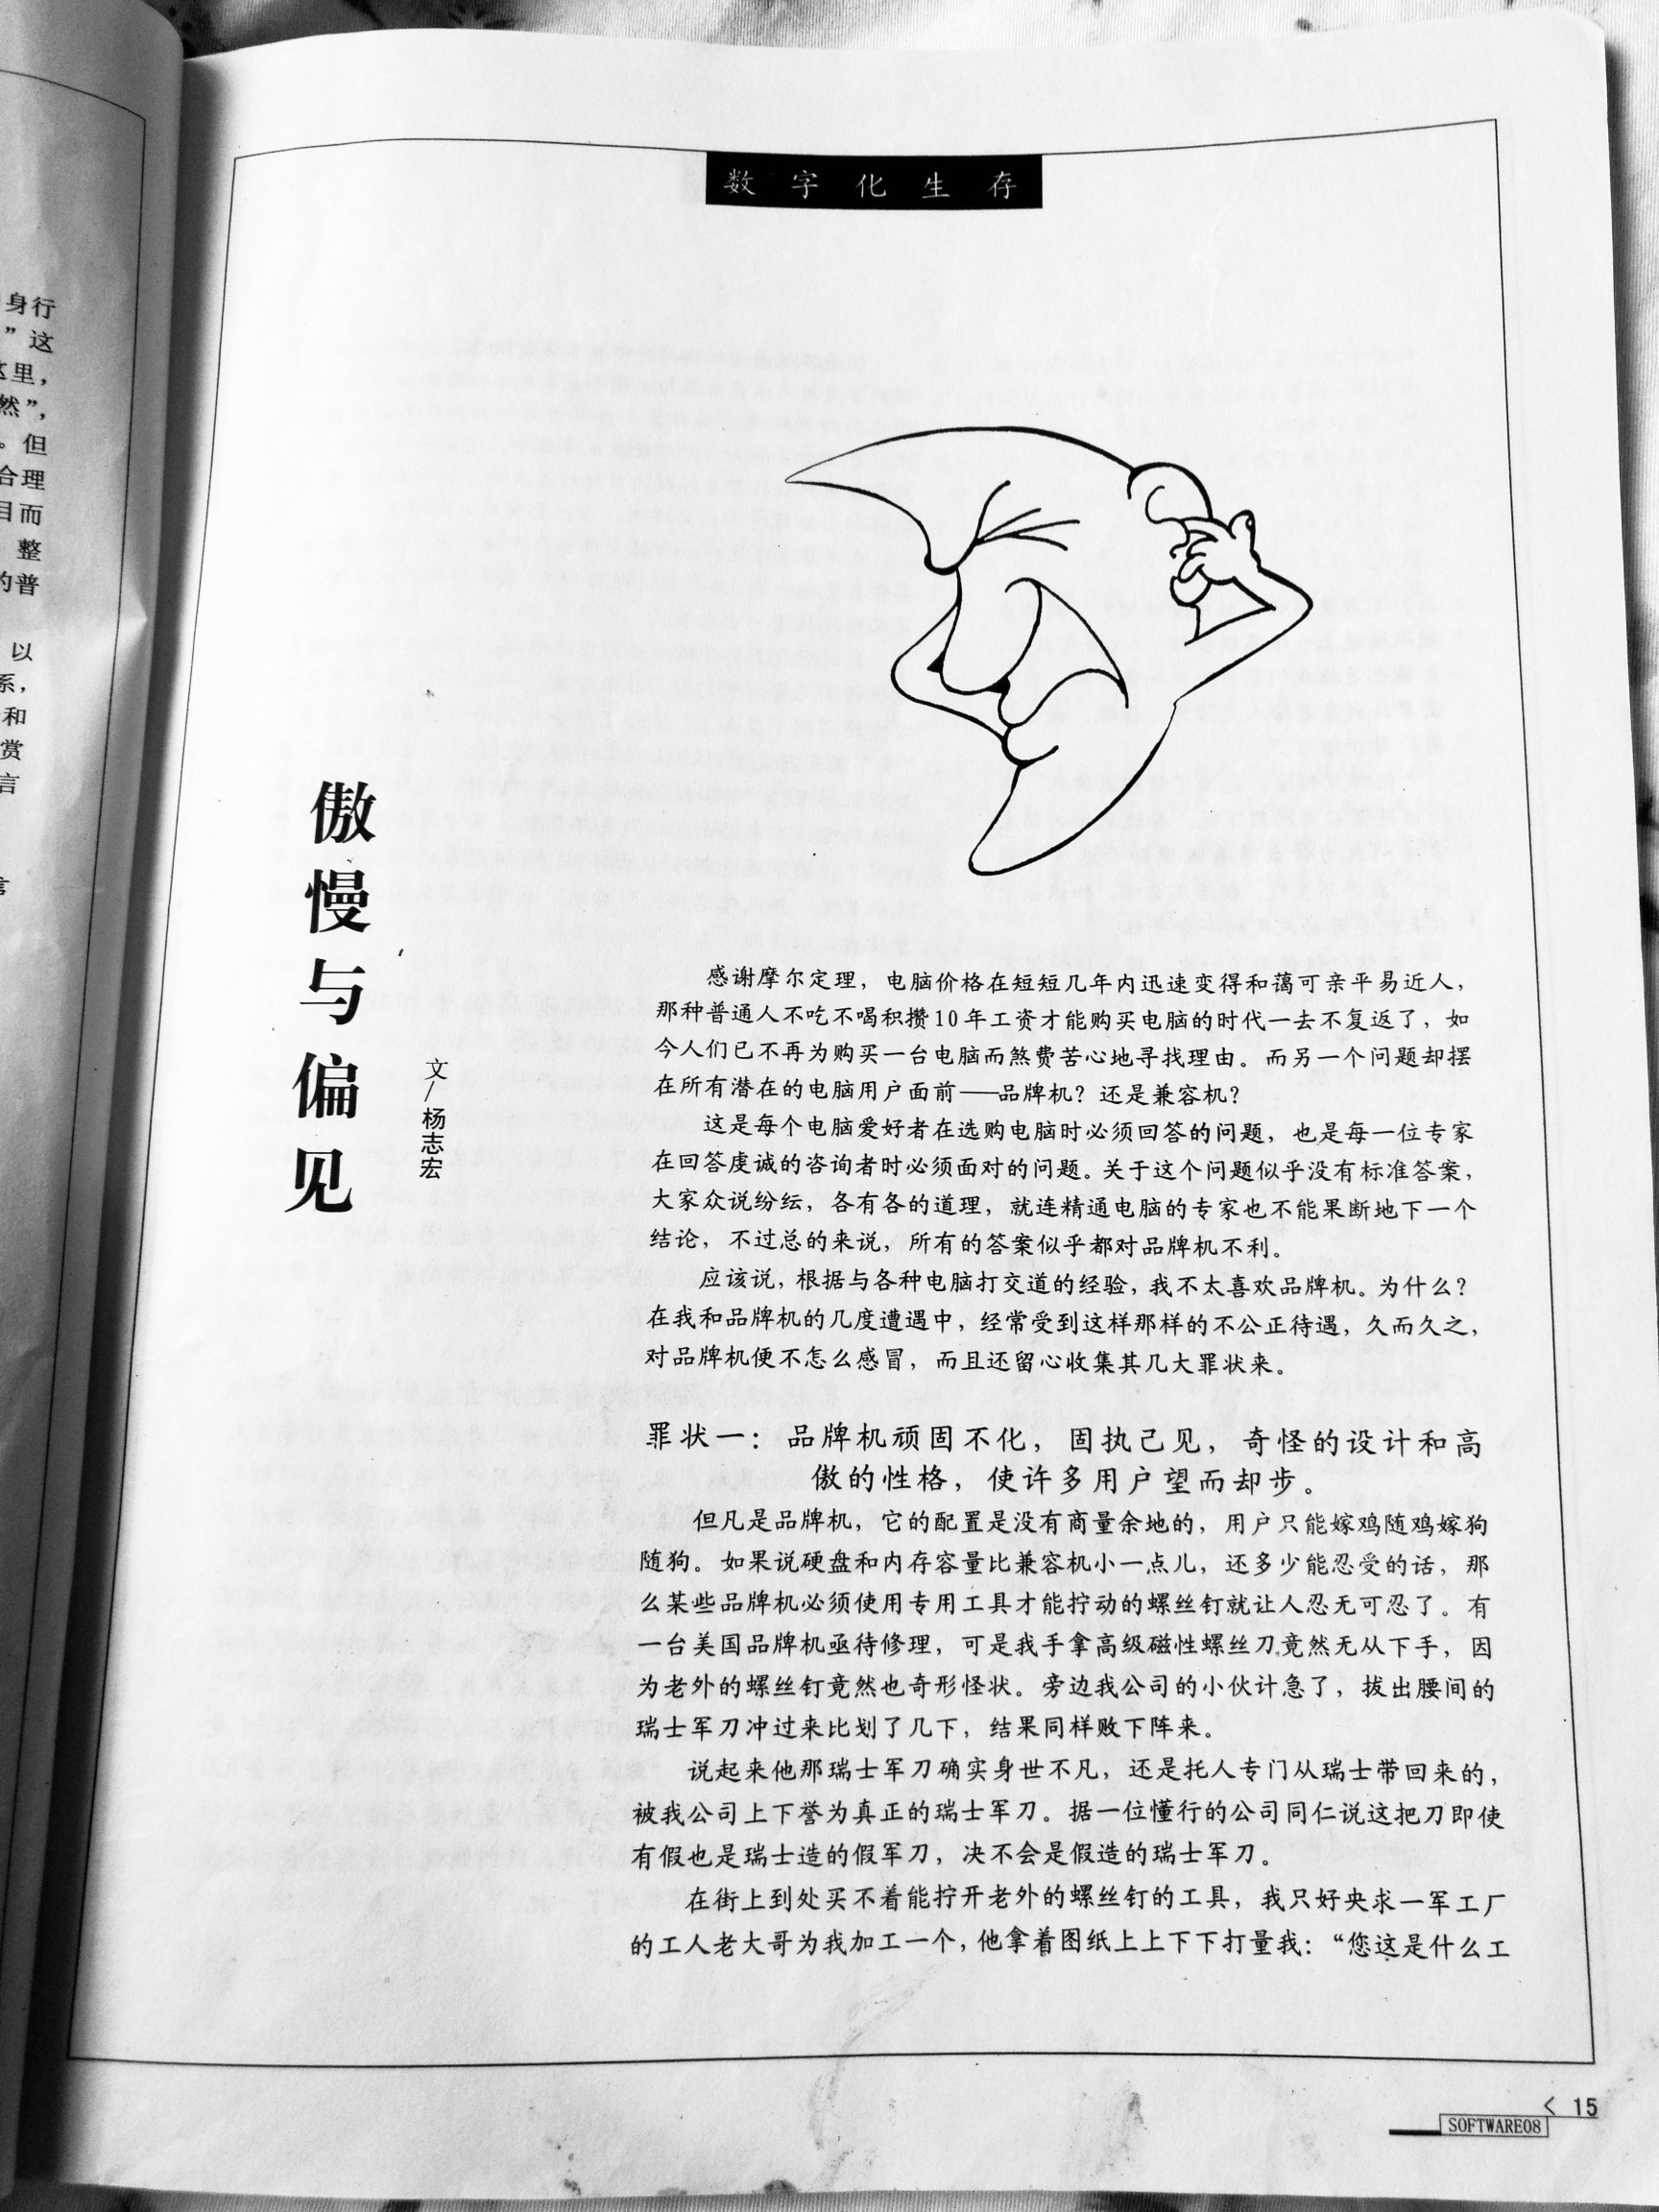 身行
”这
这里，
然”，
。但
合理
目而
整
的普
以
系，
和
赏
言
数字化生存
傲慢与偏见
文/杨志宏
感谢摩尔定理，电脑价格在短短几年内迅速变得和蔼可亲平易近人，
那种普通人不吃不喝积攒10年工资才能购买电脑的时代一去不复返了，如
今人们已不再为购买一台电脑而煞费苦心地寻找理由。而另一个问题却摆
在所有潜在的电脑用户面前——品牌机？还是兼容机？
这是每个电脑爱好者在选购电脑时必须回答的问题，也是每一位专家
在回答虔诚的咨询者时必须面对的问题。关于这个问题似乎没有标准答案，
大家众说纷纭，各有各的道理，就连精通电脑的专家也不能果断地下一个
结论，不过总的来说，所有的答案似乎都对品牌机不利。
应该说，根据与各种电脑打交道的经验，我不太喜欢品牌机。为什么？
在我和品牌机的几度遭遇中，经常受到这样那样的不公正待遇，久而久之，
对品牌机便不怎么感冒，而且还留心收集其几大罪状来。
罪状一：品牌机顽固不化，固执己见，奇怪的设计和高
傲的性格，使许多用户望而却步。
但凡是品牌机，它的配置是没有商量余地的，用户只能嫁鸡随鸡嫁狗
随狗。如果说硬盘和内存容量比兼容机小一点儿，还多少能忍受的话，那
么某些品牌机必须使用专用工具才能拧动的螺丝钉就让人忍无可忍了。有
一台美国品牌机亟待修理，可是我手拿高级磁性螺丝刀竟然无从下手，因
为老外的螺丝钉竟然也奇形怪状。旁边我公司的小伙计急了，拔出腰间的
瑞士军刀冲过来比划了几下，结果同样败下阵来。
说起来他那瑞士军刀确实身世不凡，还是托人专门从瑞士带回来的，
被我公司上下誉为真正的瑞士军刀。据一位懂行的公司同仁说这把刀即使
有假也是瑞士造的假军刀，决不会是假造的瑞士军刀。
在街上到处买不着能拧开老外的螺丝钉的工具，我只好央求一军工厂
的工人老大哥为我加工一个，他拿着图纸上上下下打量我：“您这是什么工
< 15
SOFTWARE08